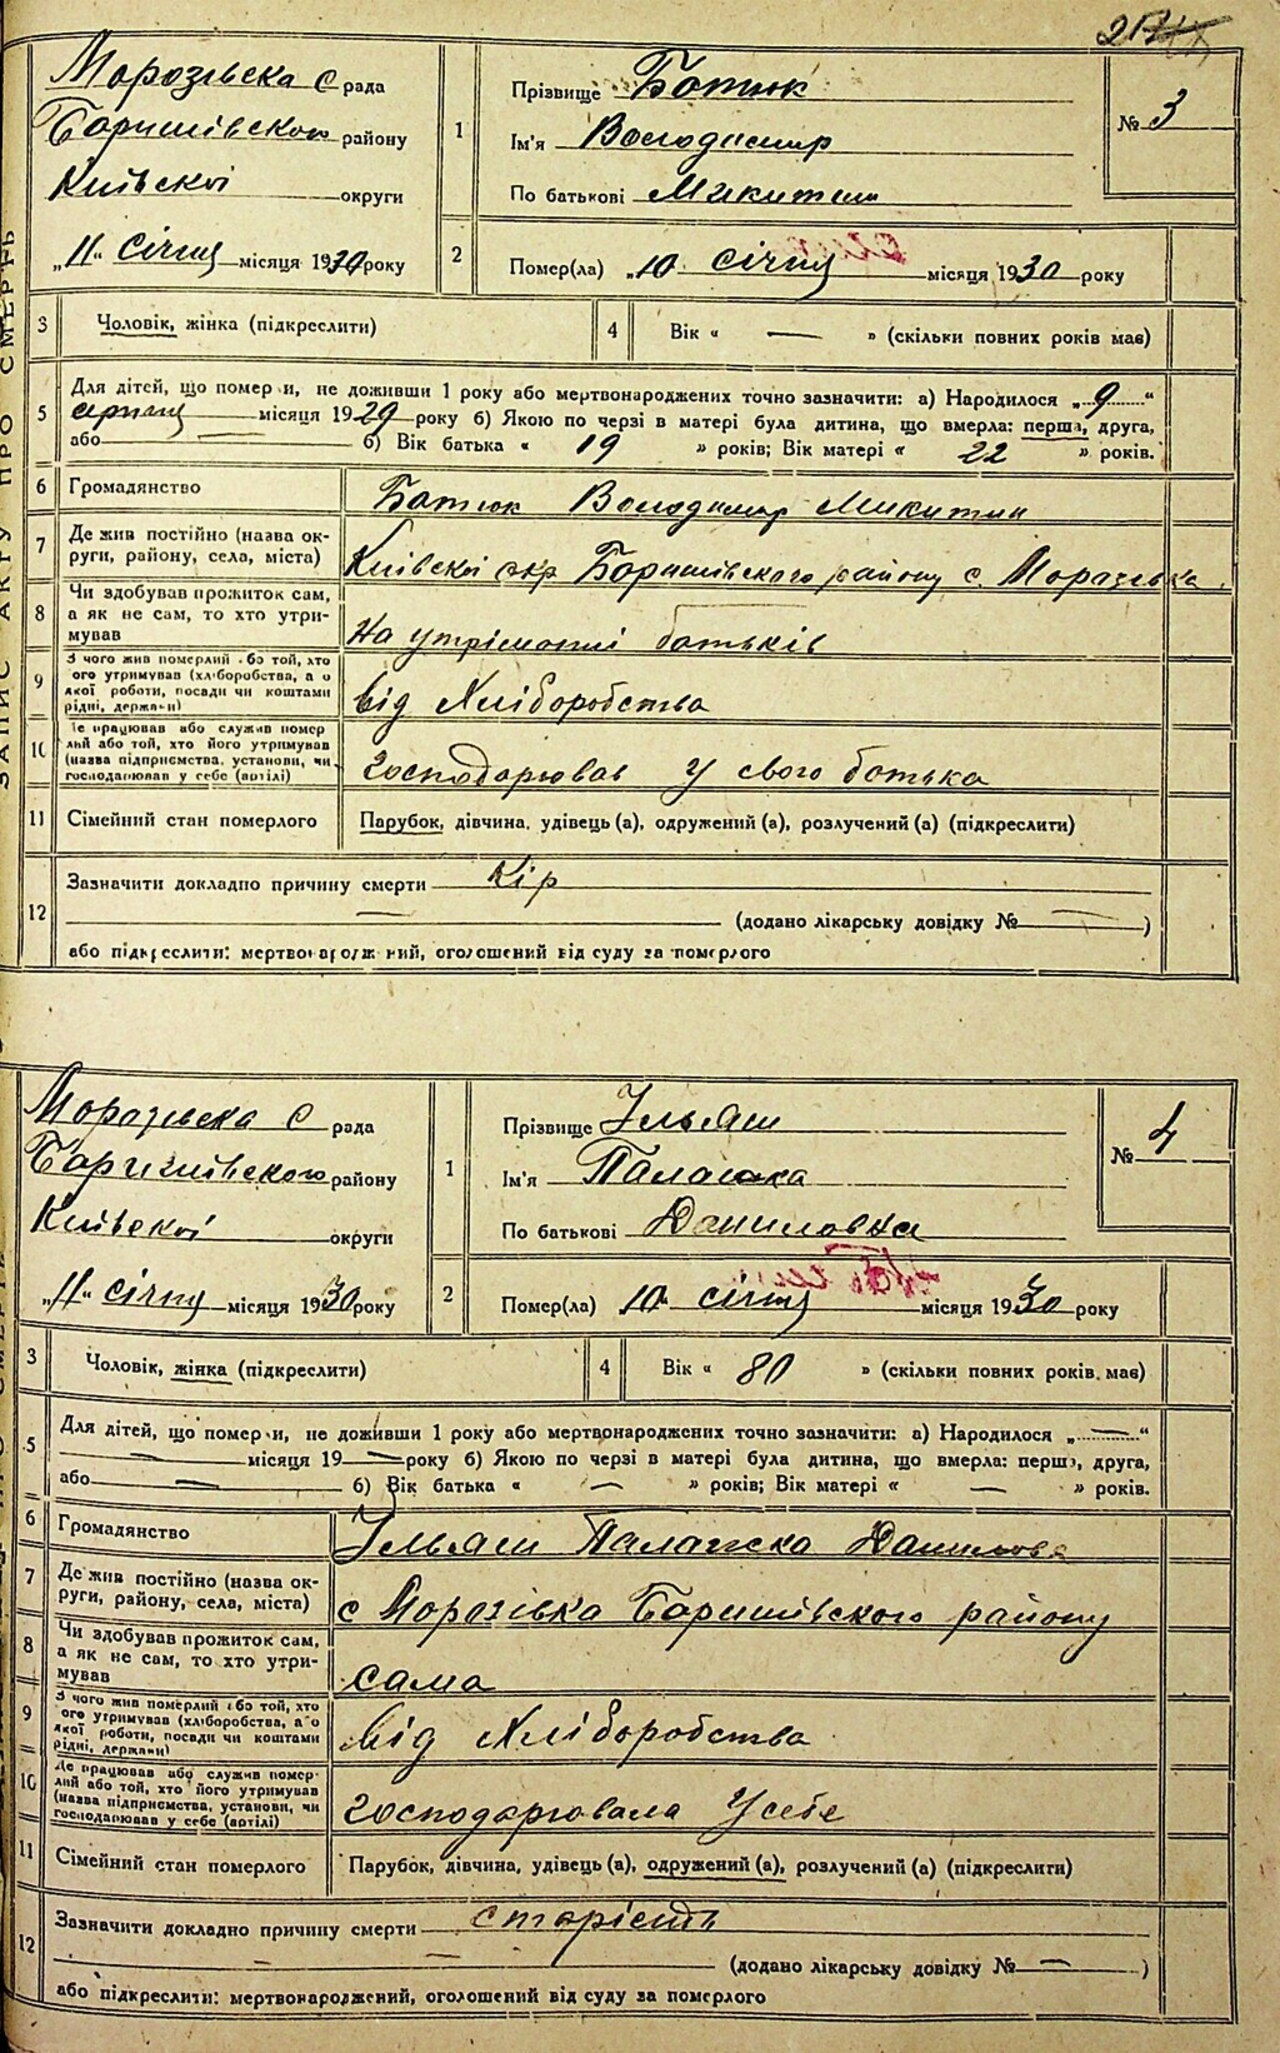 Морозівска с рада
Баришівского району
Київскої округи
„11“ січня місяця 1930 року
1
Прізвище Батюк
Ім'я Володимир
По батькові Микитин
№ 3
2
Помер(ла) „10 січня місяця 1930 року
3 Чоловік, жінка (підкреслити)
4 Вік « — » (скільки повних років має)
5 Для дітей, що помер и, не доживши 1 року або мертвонароджених точно зазначити: а) Народилося „ 9 “
серпня місяця 1929 року б) Якою по черзі в матері була дитина, що вмерла: перша, друга,
або — б) Вік батька « 19 » років; Вік матері « 22 » років.
6 Громадянство Батюк Володимир Микитин
7 Де жив постійно (назва ок-
руги, району, села, міста) Київскої окр Баришівского району с. Морозівка
8 Чи здобував прожиток сам,
а як не сам, то хто утри-
мував На утріманні батьків
9 З чого жив померлий або той, хто
ого утримував (хліборобства, а о
якої роботи, посади чи коштами
рідні, держави) від Хліборобства
10 Де працював або служив помер
лий або той, хто його утримував
(назва підприємства, установи, чи
господарював у себе (артілі) Господарював У свого батька
11 Сімейний стан померлого Парубок, дівчина, удівець (а), одружений (а), розлучений (а) (підкреслити)
12 Зазначити докладно причину смерти Кір
— (додано лікарську довідку № — )
або підкреслити: мертвонароджений, оголошений від суду за померлого
ЗАПИС АКТУ ПРО СМЕРТЬ
Морозівска с рада
Баришівского району
Київскої округи
„11“ січня місяця 1930 року
1
Прізвище Ільяш
Ім'я Палажка
По батькові Даниловна
№ 4
2
Помер(ла) 10 січня місяця 1930 року
3 Чоловік, жінка (підкреслити)
4 Вік « 80 » (скільки повних років має)
5 Для дітей, що помер и, не доживши 1 року або мертвонароджених точно зазначити: а) Народилося „ — “
— місяця 19 — року б) Якою по черзі в матері була дитина, що вмерла: перша, друга,
або — б) Вік батька « — » років; Вік матері « — » років.
6 Громадянство Ільяш Палажка Данилова
7 Де жив постійно (назва ок-
руги, району, села, міста) с Морозівка Баришівского району
8 Чи здобував прожиток сам,
а як не сам, то хто утри-
мував сама
9 З чого жив померлий або той, хто
ого утримував (хліборобства, а о
якої роботи, посади чи коштами
рідні, держави) від Хліборобства
10 Де працював або служив помер-
лий або той, хто його утримував
(назва підприємства, установи, чи
господарював у себе (артілі) Господарювала У себе
11 Сімейний стан померлого Парубок, дівчина, удівець (а), одружений (а), розлучений (а) (підкреслити)
12 Зазначити докладно причину смерти старість
— — (додано лікарську довідку № — )
або підкреслити: мертвонароджений, оголошений від суду за померлого